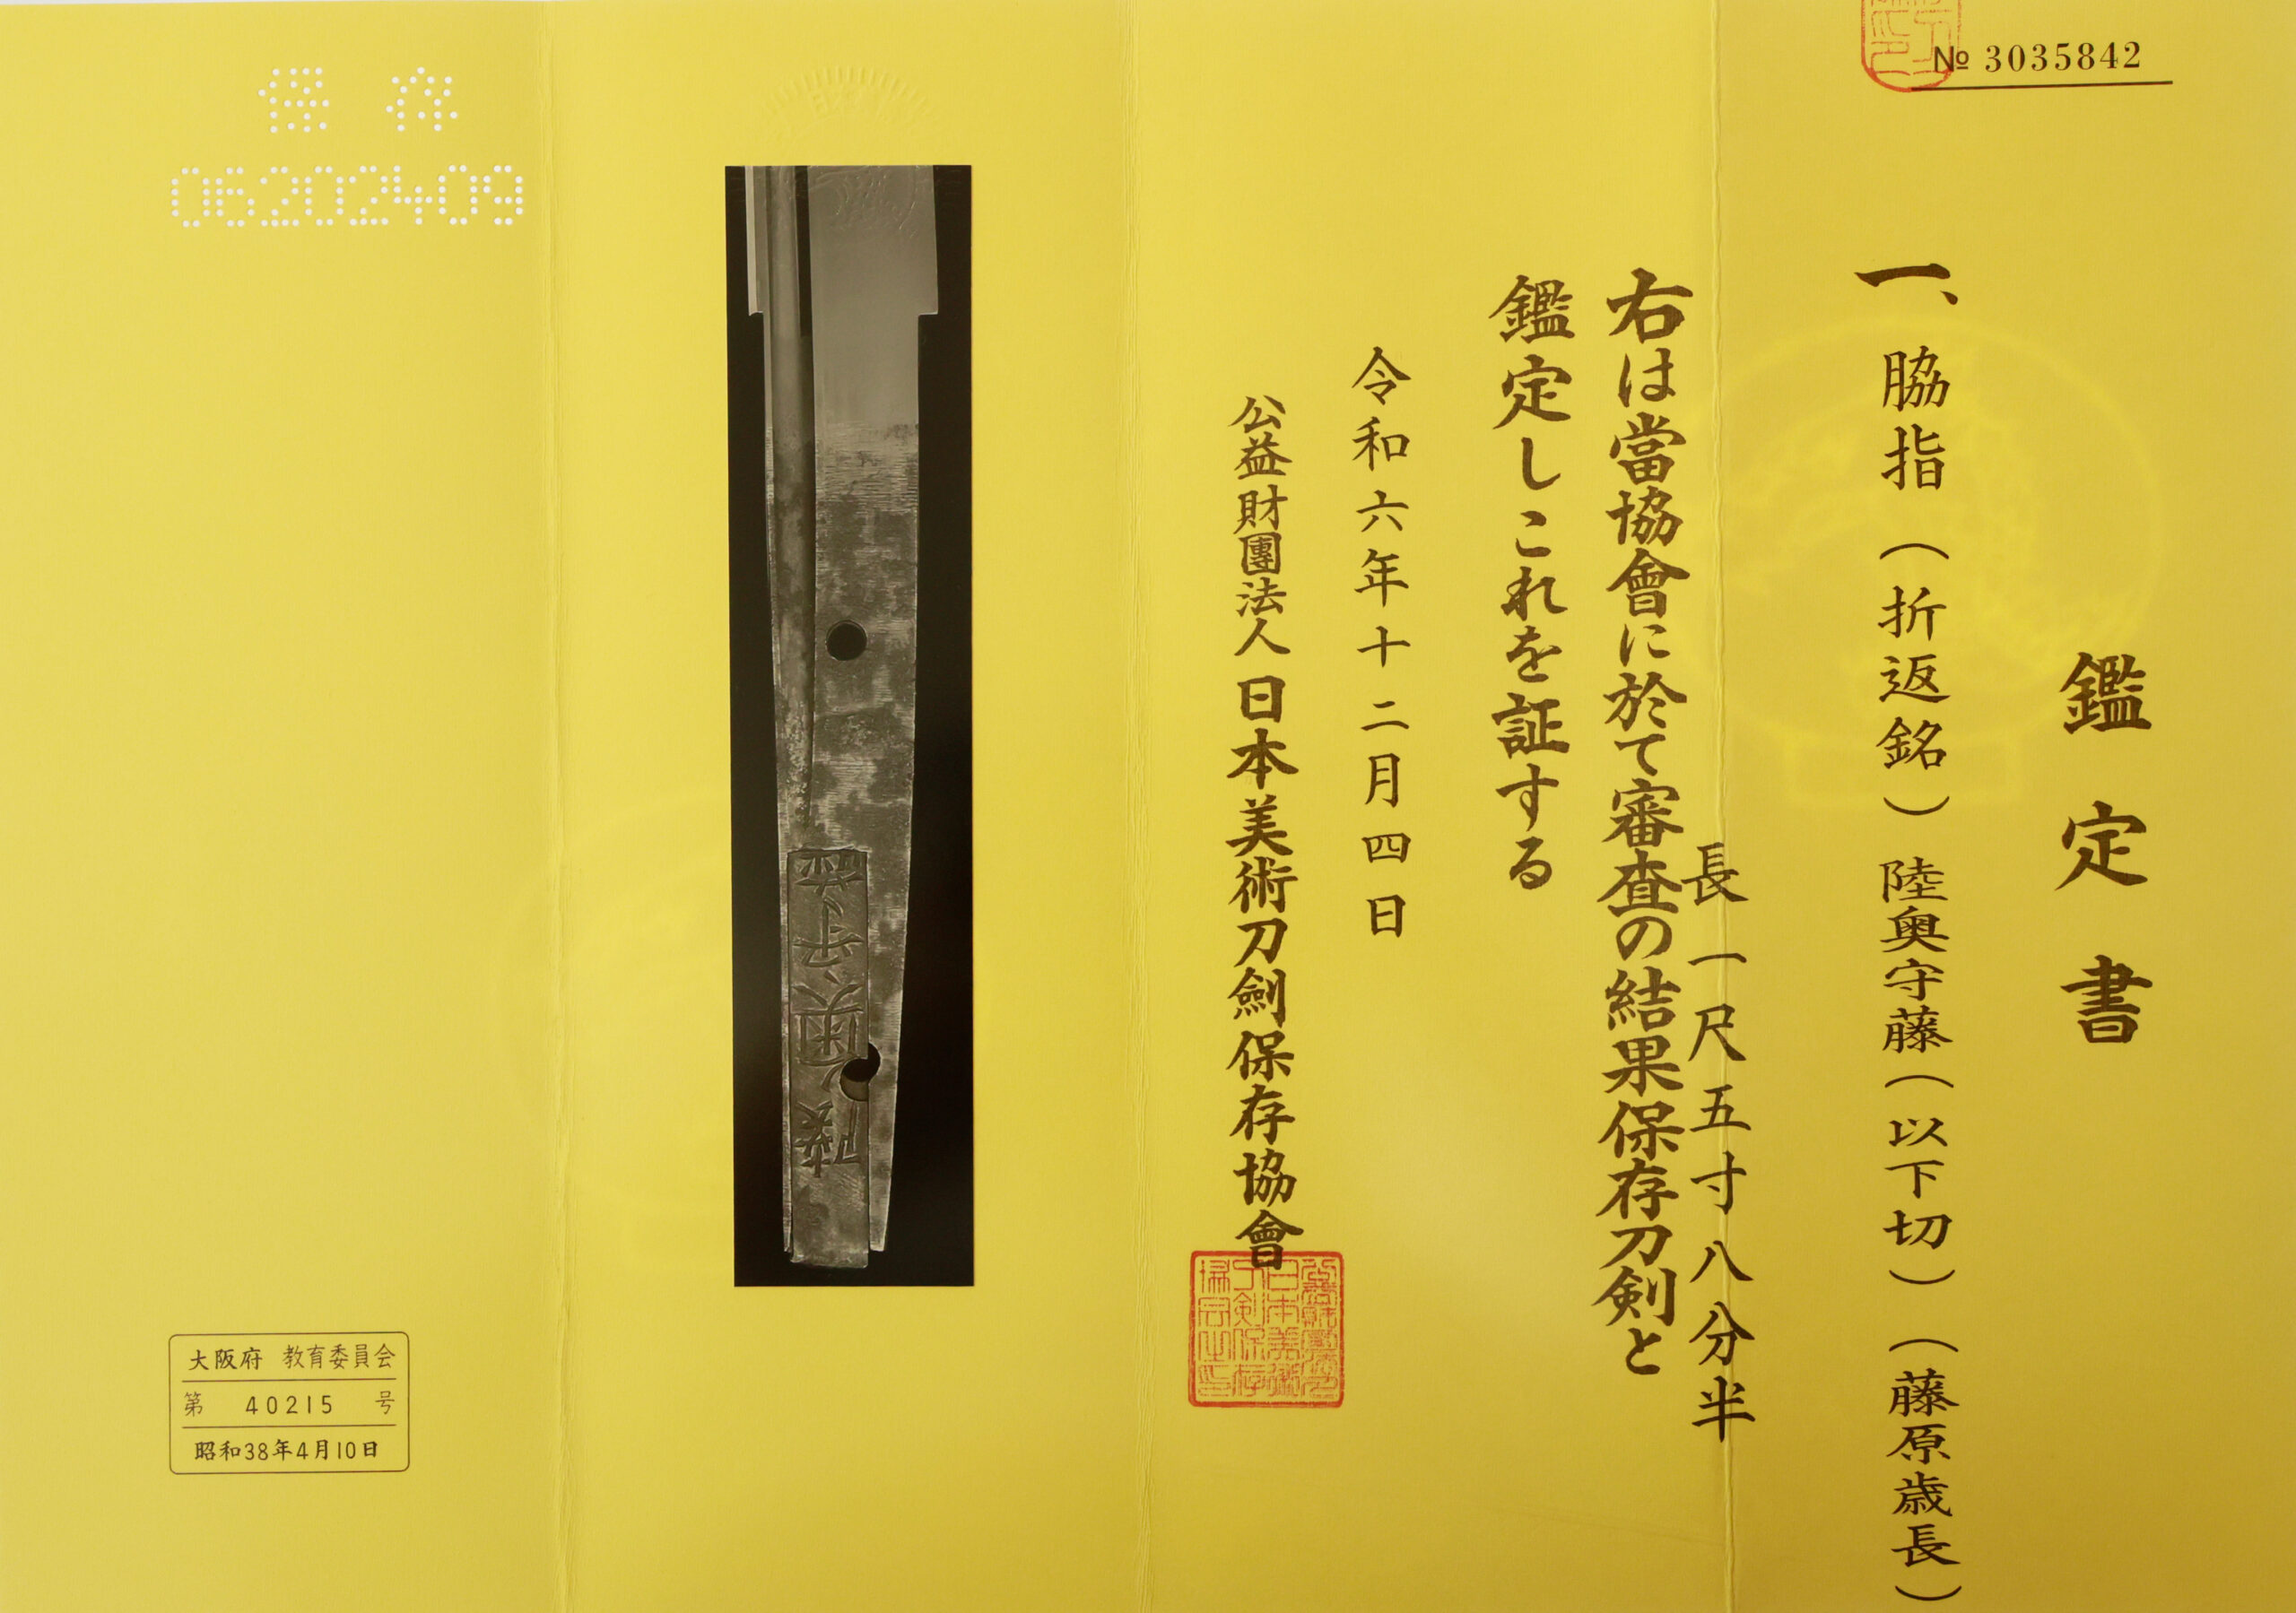 № 3035842
鑑定書
一、脇指（折返銘）陸奥守藤（以下切）（藤原歳長）
長一尺五寸八分半
右は當協會に於て審査の結果保存刀剣と
鑑定しこれを証する
令和六年十二月四日
公益財團法人日本美術刀劍保存協會
陸奥守藤
保存
06202409
大阪府 教育委員会
第 40215 号
昭和38年4月10日